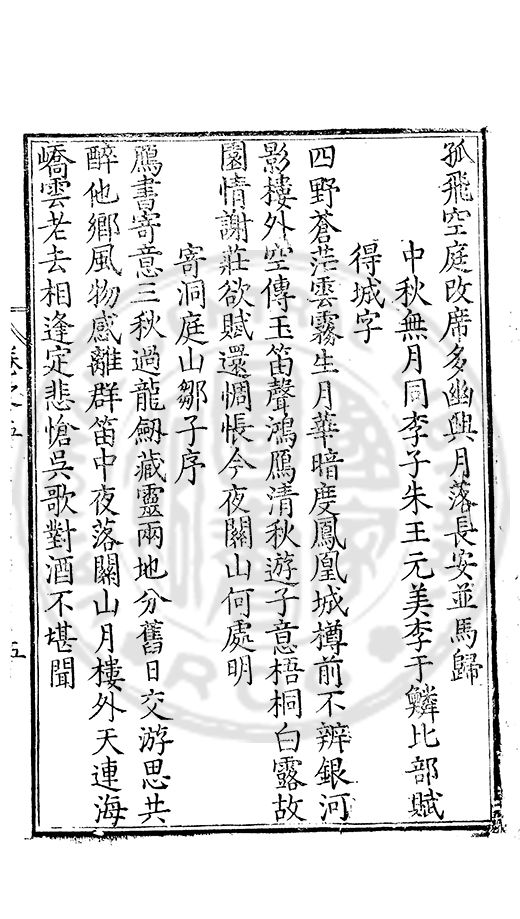 孤飛空庭改席多幽興月落長安並馬歸
中秋無月同李子朱王元美李于鱗比部賦
得城字
四野蒼茫雲霧生月華暗度鳳凰城樽前不辨銀河
影樓外空傳玉笛聲鴻鴈清秋遊子意梧桐白露故
園情謝莊欲賦還惆悵今夜關山何處明
寄洞庭山鄒子序
鴈書寄意三秋過龍劔藏靈兩地分舊日交游思共
醉他鄉風物感離群笛中夜落關山月樓外天連海
嶠雲老去相逢定悲愴吳歌對酒不堪聞
卷之五
五